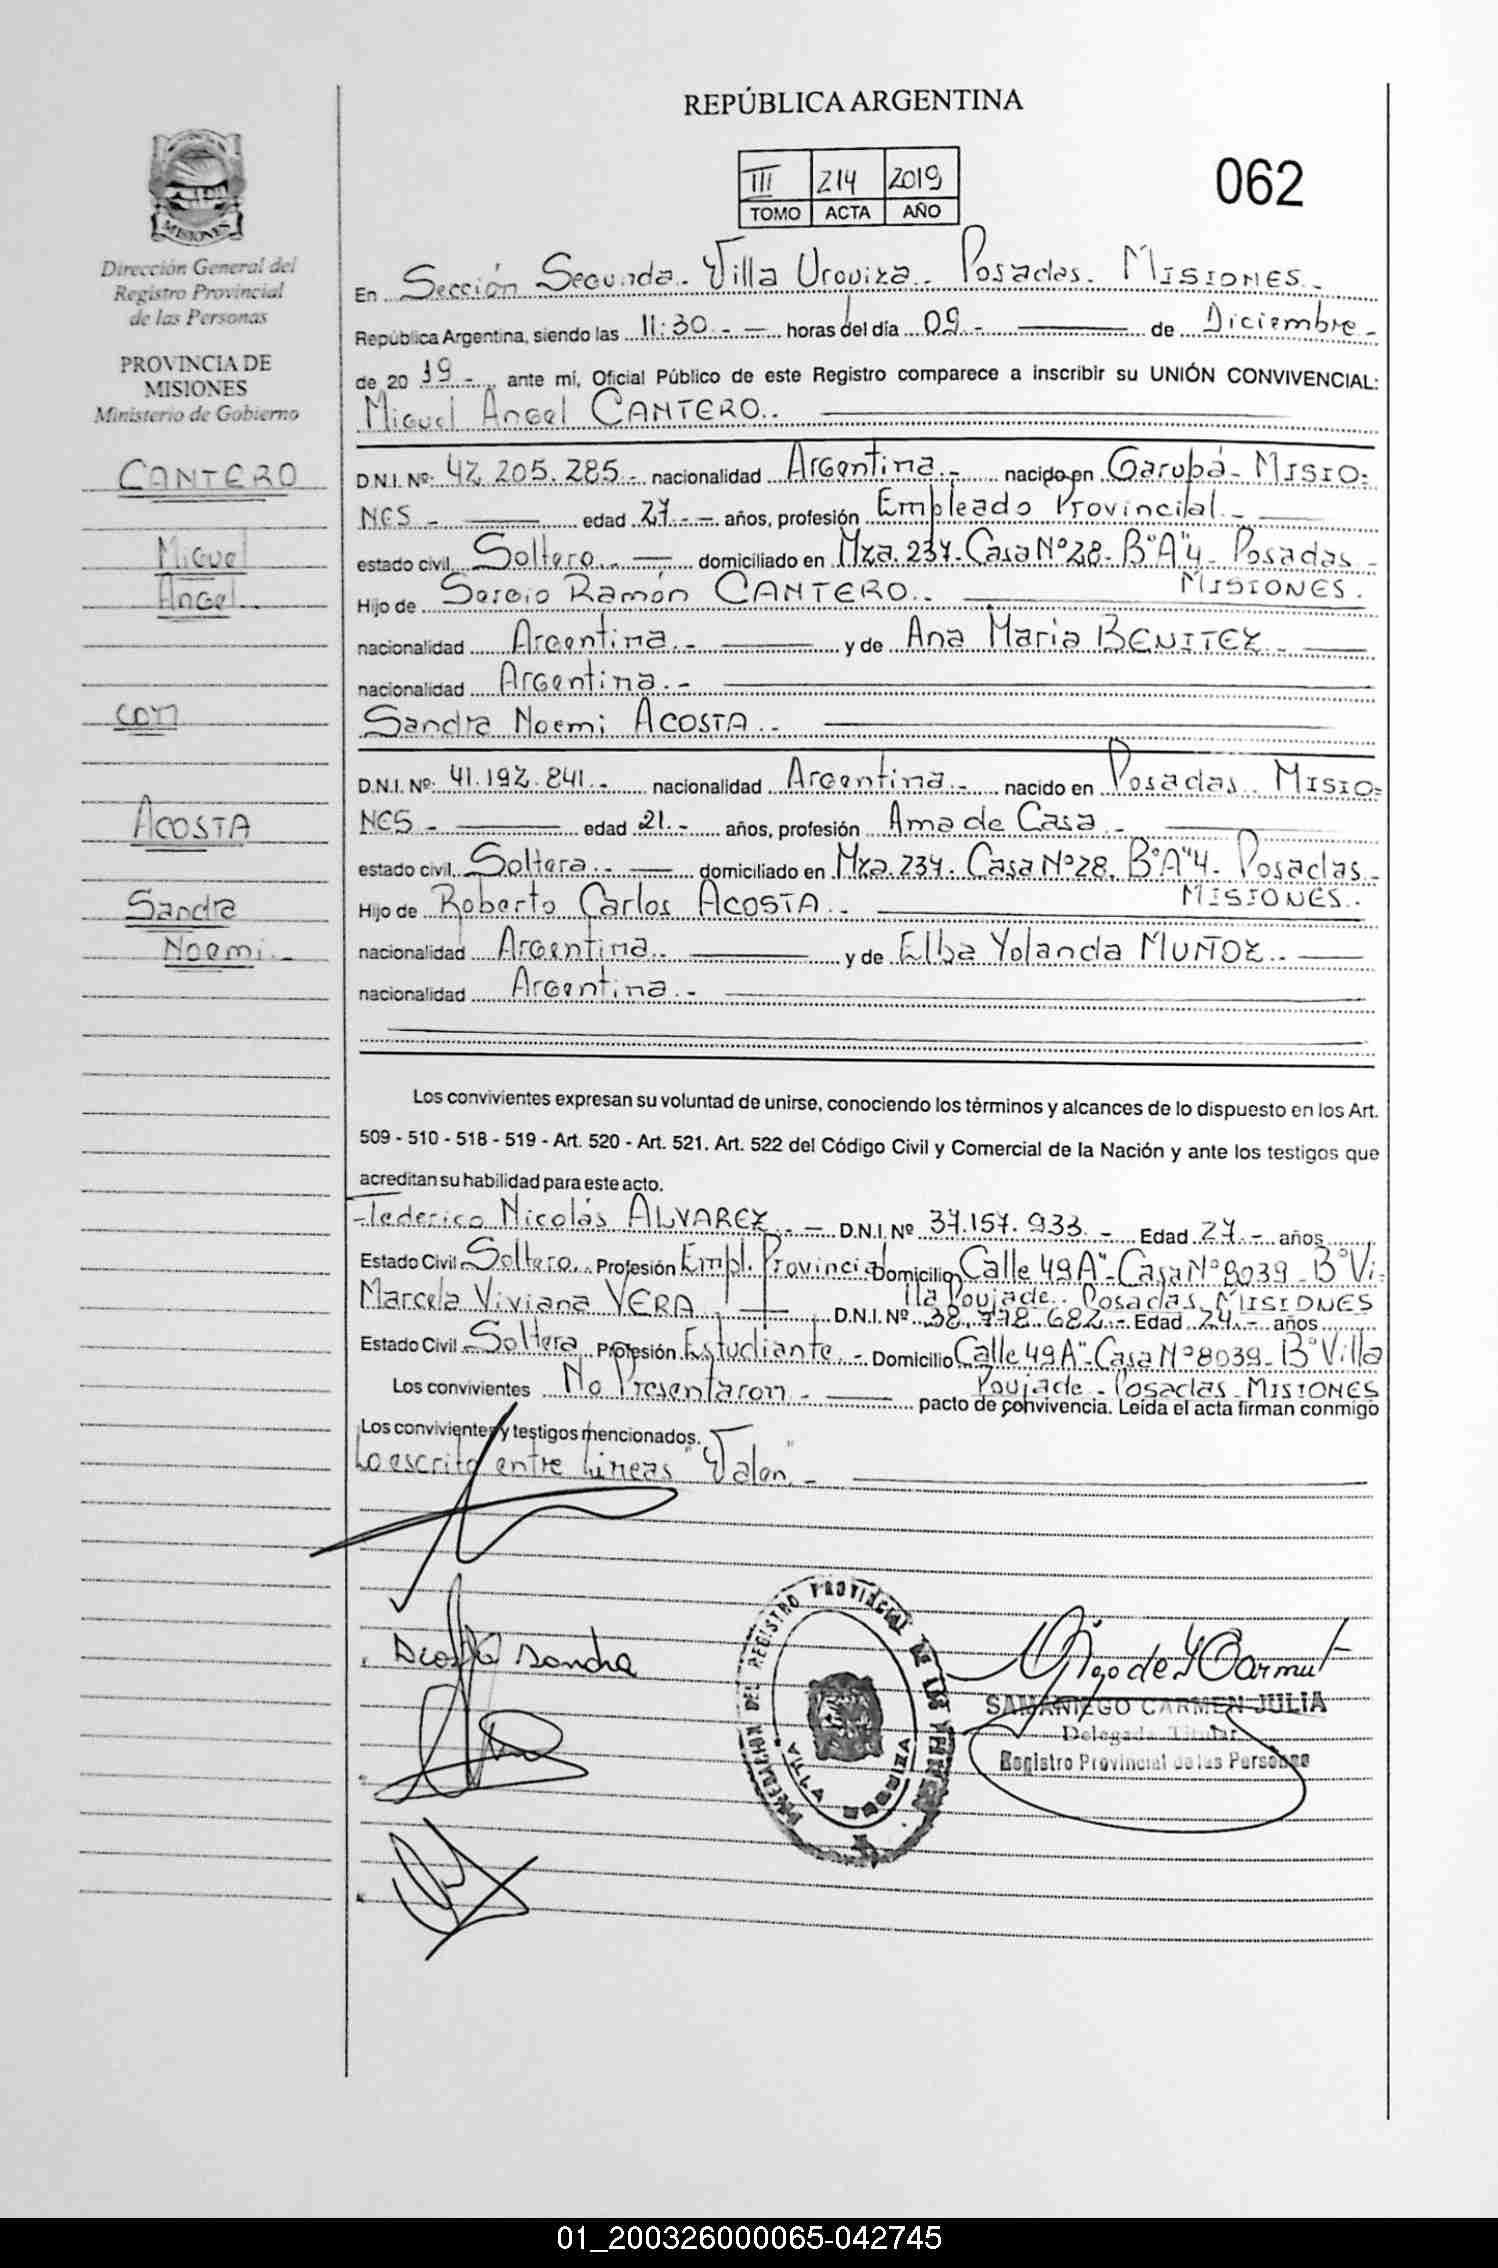 REPÚBLICA ARGENTINA
III 214 2019
TOMO ACTA AÑO
062
Dirección General del
Registro Provincial
de las Personas
PROVINCIA DE
MISIONES
Ministerio de Gobierno
CANTERO
Miguel
Angel
con
ACOSTA
Sandra
Noemi.-
En Sección Segunda.- Villa Urquiza.- Posadas.- MISIONES.-
República Argentina, siendo las 11:30.- horas del día 09.- de Diciembre.-
de 20 19.-, ante mí, Oficial Público de este Registro comparece a inscribir su UNIÓN CONVIVENCIAL:
Miguel Angel CANTERO.-
D.N.I. Nº: 42.205.285.- nacionalidad Argentina.- nacido en Garupá- MISIO=
NES - edad 27.- años, profesión Empleado Provincial.-
estado civil Soltero.- domiciliado en Mza. 237- Casa Nº28- Bº"A"4- Posadas-
MISIONES.
Hijo de Sergio Ramón CANTERO.-
nacionalidad Argentina.- y de Ana Maria BENITEZ.-
nacionalidad Argentina.-
Sandra Noemi ACOSTA.-
D.N.I. Nº: 41.192.841.- nacionalidad Argentina.- nacido en Posadas. MISIO=
NES - edad 21.- años, profesión Ama de Casa.-
estado civil Soltera.- domiciliado en Mza. 237. Casa Nº28. Bº"A"4- Posadas.-
MISIONES.-
Hijo de Roberto Carlos ACOSTA.-
nacionalidad Argentina.- y de Elba Yolanda MUÑOZ.-
nacionalidad Argentina.-
Los convivientes expresan su voluntad de unirse, conociendo los términos y alcances de lo dispuesto en los Art.
509 - 510 - 518 - 519 - Art. 520 - Art. 521. Art. 522 del Código Civil y Comercial de la Nación y ante los testigos que
acreditan su habilidad para este acto.
Federico Nicolás ALVAREZ.- D.N.I. Nº 37.157.933.- Edad 27.- años
Estado Civil Soltero.- Profesión Empl. Provincial Domicilio Calle 49 A"- Casa Nº 8039- Bº Vi-
lla Poujade.- Posadas. MISIONES
Marcela Viviana VERA.- D.N.I. Nº 38.778.682.- Edad 24.- años
Estado Civil Soltera Profesión Estudiante.- Domicilio Calle 49 A"- Casa Nº 8039- Bº Villa
Poujade - Posadas - MISIONES
Los convivientes No Presentaron - pacto de convivencia. Leída el acta firman conmigo
Los convivientes y testigos mencionados.
Lo escrito entre líneas "Valen".-
Acosta Sandra
DELEGACION DEL REGISTRO PROVINCIAL DE LAS PERSONAS
VILLA URQUIZA
SAMANIEGO CARMEN JULIA
Delegada Titular
Registro Provincial de las Personas
01_200326000065-042745